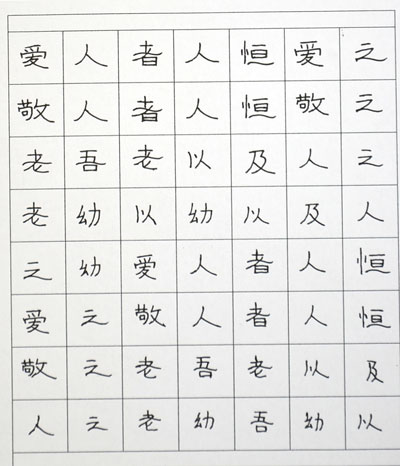 爱人者人恒爱之
敬人者人恒敬之
老吾老以及人之
老幼以幼以及人
之幼爱人者人恒
爱之敬人者人恒
敬之老吾老以及
人之老幼吾幼以